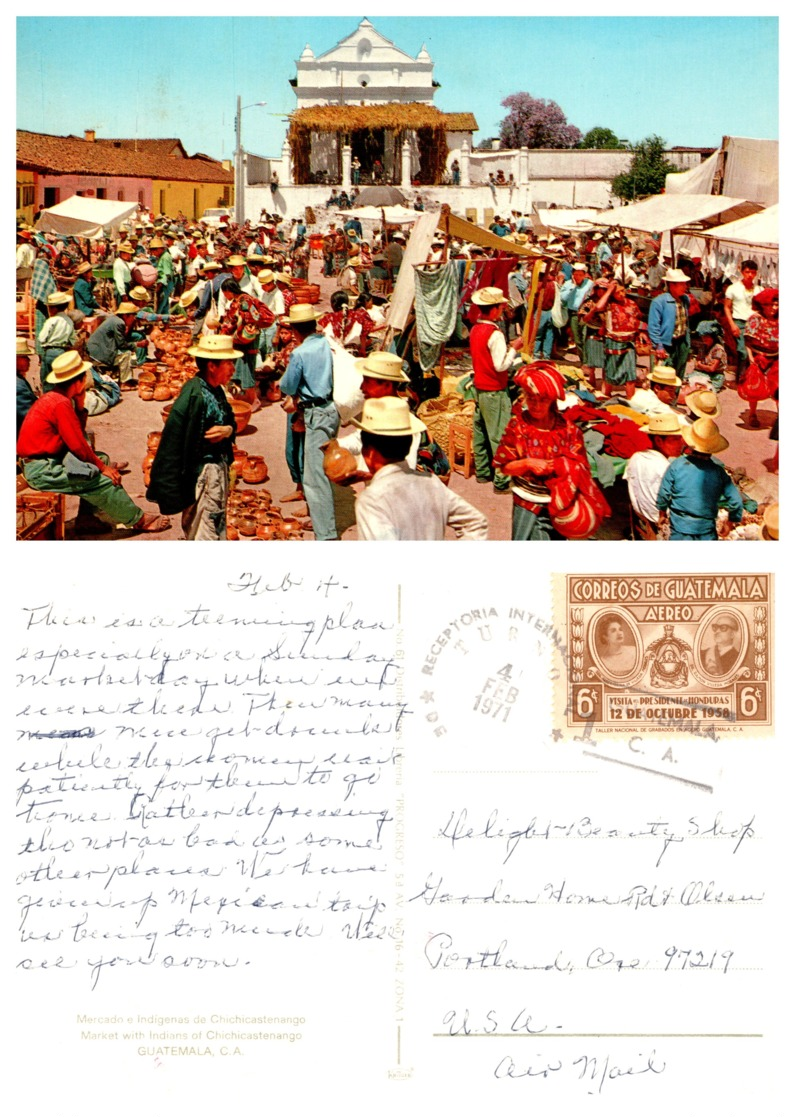 Feb 4-
This is a teeming place
especially on a Sunday
market day when we
were there. Then many
men get drunk
while the women wait
patiently for them to go
home. Rather depressing
tho not as bad as some
other places. We have
given up Mexican trip
as being too much. Will
see you soon.
Mercado e Indígenas de Chichicastenango
Market with Indians of Chichicastenango
GUATEMALA, C.A.
"PROGRESO" 5a AV. No. 16-42 ZONA 1
RECEPTORIA INTERNAC
TUR
4
FEB
1971
C. A.
CORREOS DE GUATEMALA
AEREO
6¢ 6¢
VISITA DEL PRESIDENTE DE HONDURAS
12 DE OCTUBRE 1958
TALLER NACIONAL DE GRABADOS EN ACERO GUATEMALA, C. A.
Delight Beauty Shop
Garden Home Rd & Olesen
Portland, Ore 97219
U.S.A.-
Air Mail